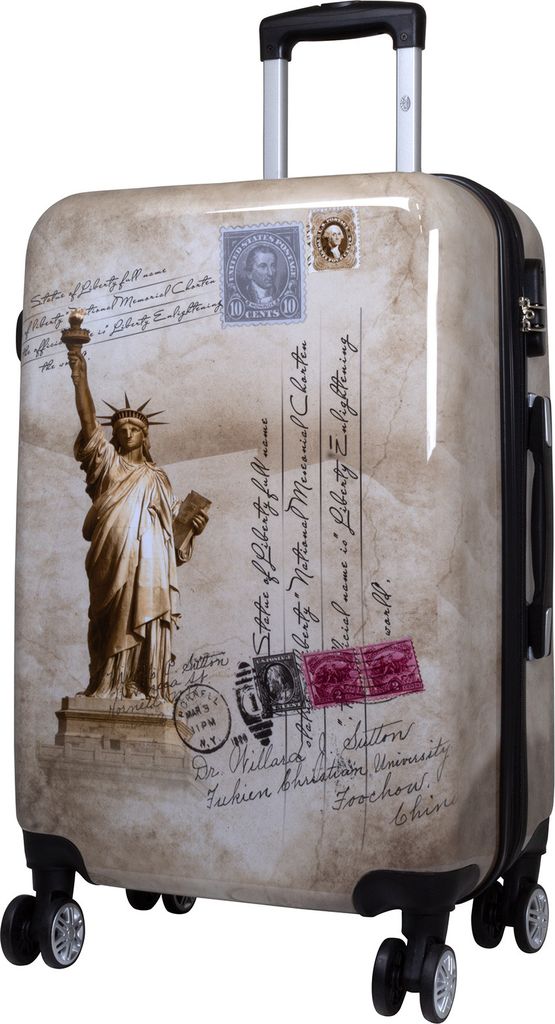 Statue of Liberty full name
of liberty" National Memorial Charten
the official name is" Liberty Enlightening
the world.
UNITED STATES POSTAGE
10 CENTS 10
Statue of Liberty full name
liberty" National Memorial Charten
official name is" Liberty Enlightening
world.
Sutton
Hornell
HORNELL
MAR 9
11 PM
N.Y.
1
U.S. POSTAGE
2 2
2 2
Dr. Willard J. Sutton
Fukien Christian University
Foochow,
China